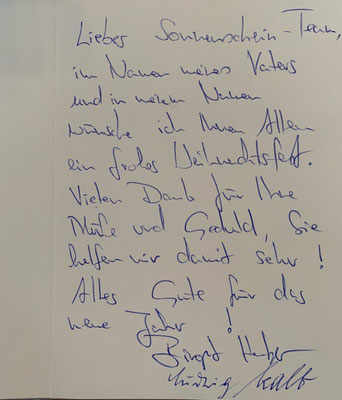 Liebes Sonnenschein-Team,
im Namen meines Vaters
und in meinem Namen
wünsche ich Ihnen Allen
ein frohes Weihnachtsfest.
Vielen Dank für Ihre
Mühe und Geduld, Sie
helfen mir damit sehr!
Alles Gute für das
neue Jahr!
Birgit Huber
Ludwig Kalb